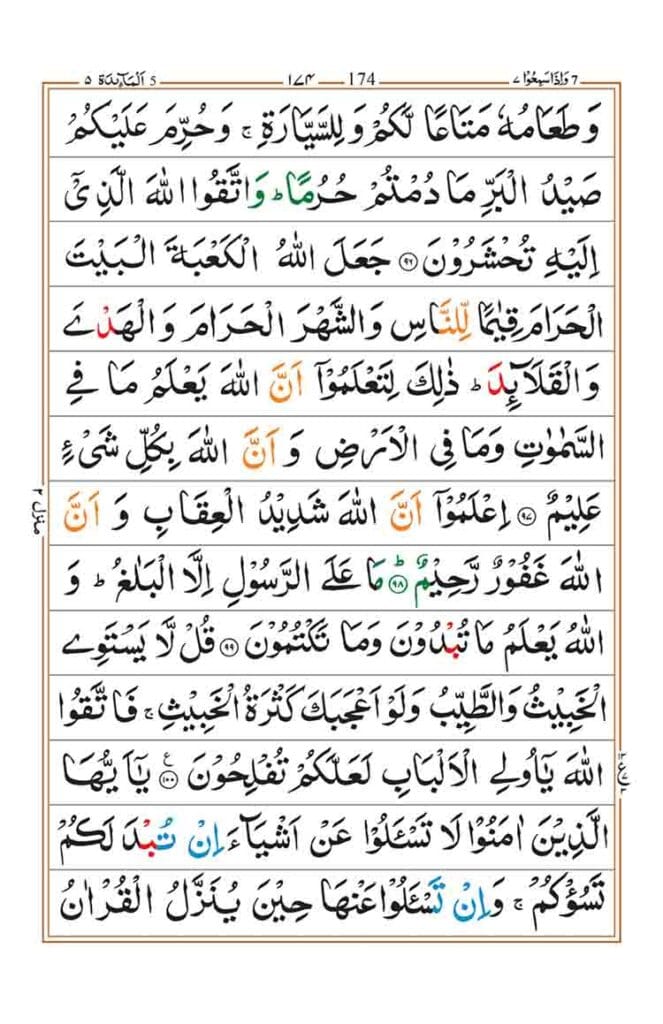 وَاِذَاسَمِعُوْا ٧ 7 174 ١٧٤ 5 اَلْمَآئِدَة ٥
وَطَعَامُهٗ مَتَاعًا لَّكُمْ وَلِلسَّيَّارَةِ ۚ وَحُرِّمَ عَلَيْكُمْ
صَيْدُ الْبَرِّ مَا دُمْتُمْ حُرُمًا ؕ وَاتَّقُوا اللّٰهَ الَّذِیْۤ
اِلَيْهِ تُحْشَرُوْنَ ﴿۹۶﴾ جَعَلَ اللّٰهُ الْكَعْبَةَ الْبَيْتَ
الْحَرَامَ قِيٰمًا لِّلنَّاسِ وَالشَّهْرَ الْحَرَامَ وَالْهَدْیَ
وَالْقَلَآئِدَ ؕ ذٰلِكَ لِتَعْلَمُوْۤا اَنَّ اللّٰهَ يَعْلَمُ مَا فِی
السَّمٰوٰتِ وَمَا فِی الْاَرْضِ وَ اَنَّ اللّٰهَ بِكُلِّ شَیْءٍ
عَلِيْمٌ ﴿۹۷﴾ اِعْلَمُوْۤا اَنَّ اللّٰهَ شَدِيْدُ الْعِقَابِ وَ اَنَّ
اللّٰهَ غَفُوْرٌ رَّحِيْمٌ ﴿۹۸﴾ؕ مَا عَلَی الرَّسُوْلِ اِلَّا الْبَلٰغُ ؕ وَ
اللّٰهُ يَعْلَمُ مَا تُبْدُوْنَ وَمَا تَكْتُمُوْنَ ﴿۹۹﴾ قُلْ لَّا يَسْتَوِی
الْخَبِيْثُ وَالطَّيِّبُ وَلَوْ اَعْجَبَكَ كَثْرَةُ الْخَبِيْثِ ۚ فَاتَّقُوا
اللّٰهَ يٰۤاُولِی الْاَلْبَابِ لَعَلَّكُمْ تُفْلِحُوْنَ ﴿۱۰۰﴾ ع يٰۤاَيُّهَا
الَّذِيْنَ اٰمَنُوْا لَا تَسْـَٔلُوْا عَنْ اَشْيَآءَ اِنْ تُبْدَ لَكُمْ
تَسُؤْكُمْ ۚ وَاِنْ تَسْـَٔلُوْا عَنْهَا حِيْنَ يُنَزَّلُ الْقُرْاٰنُ
منزل ۲